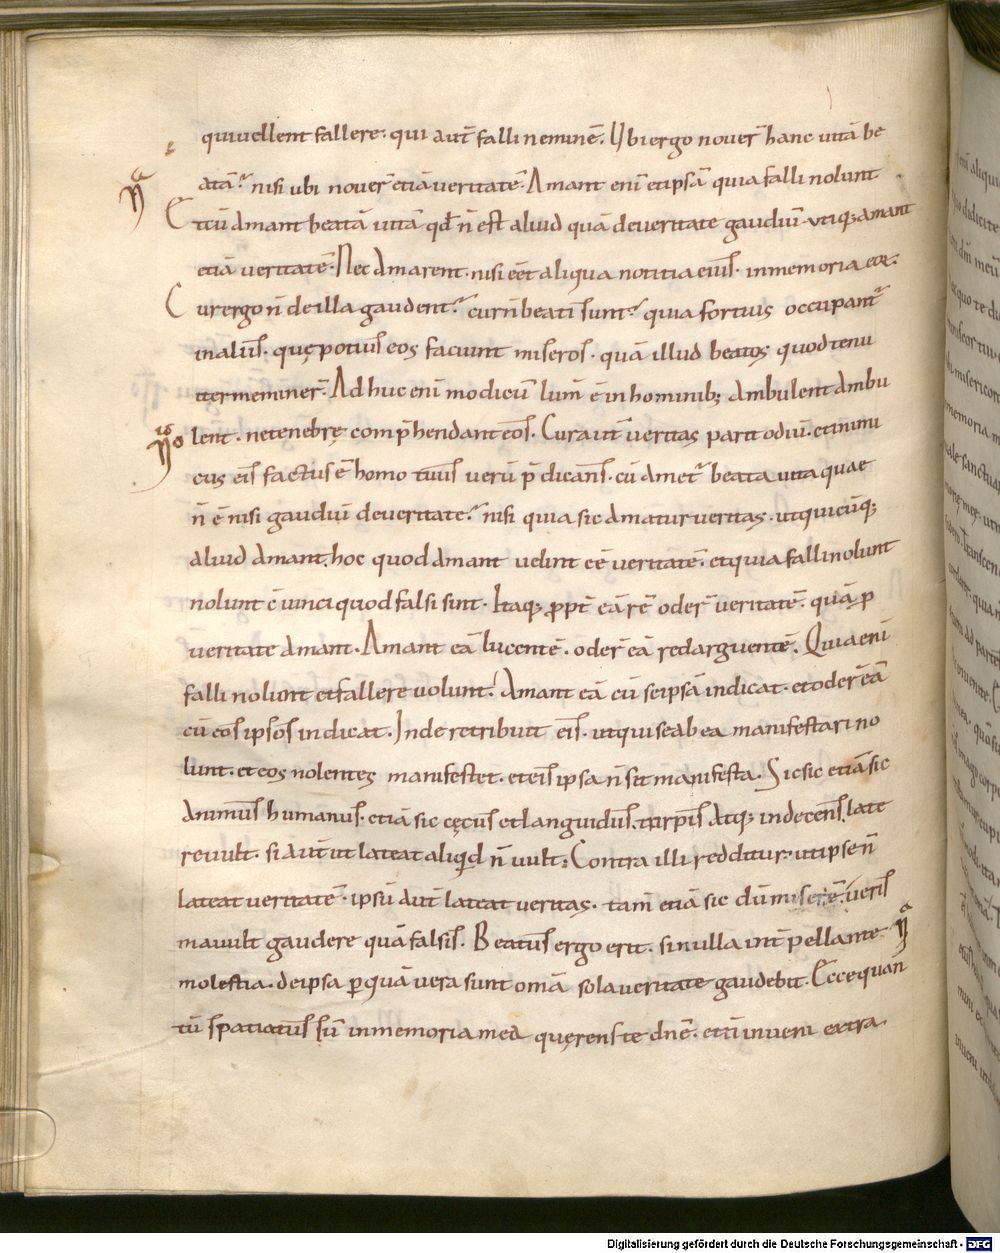 qui uellent fallere. qui aut̄ falli neminē. Ubi ergo nouer̄ hanc uitā be
atā. nisi ubi nouer̄ etiā veritatē. Amant enī et ipsā quia falli nolunt
Et cū amant beatā uitā qđ n̄ est aliud quā de veritate gaudiū. utiq; amant
etiā veritatē. Nec amarent. nisi eēt aliqua notitia eius. in memoria eor̄.
Cur ergo n̄ de illa gaudent. cur n̄ beati sunt. quia fortius occupant᷑
in aliis. quę potius eos faciunt miseros. quā illud beatos quod tenu
iter meminer̄. Adhuc enī modicū lum̄ ē in hominib; ambulent ambu
lent. ne tenebrę comp̄hendant eos. Cur aut̄ veritas parit odiū. et inimi
cus eis factus ē homo tuus verū p̄dicans. cū amet᷑ beata uita quae
n̄ ē nisi gaudiū de veritate. nisi quia sic amatur veritas. ut quicūq;
aliud amant. hoc quod amant velint eē veritatē. et quia falli nolunt
nolunt c̄uinci quod falsi sint. Itaq; ꝓpt̄ eā rē oder̄ veritatē. quā ꝓ
veritate amant. Amant eā lucentē. oder̄ eā redarguentē. Quia enī
falli nolunt et fallere uolunt. Amant eā cū se ipsā indicat. et oder̄ eā
cū eos ipsos indicat. Inde retribuit eis. ut qui se ab ea manifestari no
lunt. et eos nolentes manifestet. et eis ipsa n̄ sit manifesta. Sic sic etiā sic
animus humanus. etiā sic cęcus et languidus. turpis atq; indecens. late
re uult. si aut̄ ut lateat aliquid n̄ uult. Contra illi redditur. ut ipse n̄
lateat veritatē. ipsū aut̄ lateat veritas. tam̄ etiā sic dū miser ē. veris
mauult gaudere quā falsis. Beatus ergo erit. si nulla int̄pellante
molestia. de ipsa ꝑ quā vera sunt om̄a sola veritate gaudebit. Ecce quan
tū spatiatus sū in memoria mea quęrens te dn̄e. et n̄ te inueni extra.
Digitalisierung gefördert durch die Deutsche Forschungsgemeinschaft - DFG